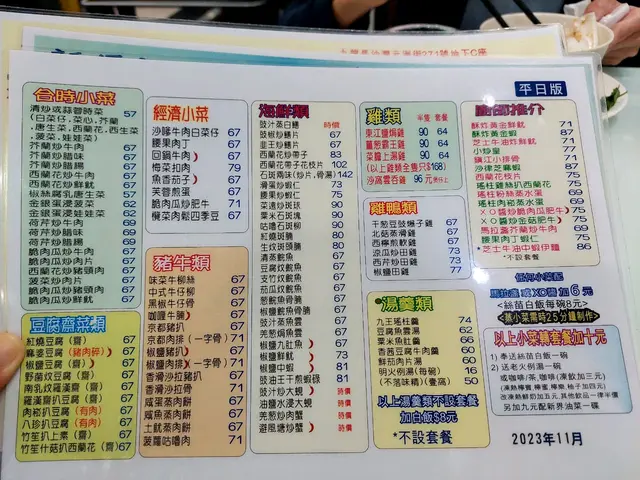 平日版
合時小菜
清炒或蒜蓉時菜 57
(白菜仔,菜心,芥蘭
,唐生菜,西蘭花,西生菜
,菠菜,娃娃菜)
芥蘭炒牛肉 67
芥蘭炒臘味 69
芥蘭炒臘腸 69
西蘭花炒牛肉 67
西蘭花炒魷魚 67
椒絲腐乳唐生菜 60
金銀蛋浸菠菜 62
金銀蛋浸娃娃菜 62
荷芹炒牛肉 67
荷芹炒臘味 69
荷芹炒臘腸 69
脆肉瓜炒牛肉 67
脆肉瓜炒肉片 67
西蘭花炒豬頸肉 67
脆肉瓜炒豬頸肉 67
脆肉瓜炒鮮魷 67
豆腐齋菜類
紅燒豆腐(齋) 67
麻婆豆腐(豬肉碎) 67
椒鹽豆腐(齋) 67
野菌炆豆腐(齋) 67
南乳炆羅漢齋(齋) 67
羅漢齋扒豆腐(齋) 67
肉崧扒豆腐(有肉) 67
八珍扒豆腐(有肉) 67
竹笙扒上素(齋) 67
竹笙什菇扒西蘭花(齋) 67
經濟小菜
沙嗲牛肉白菜仔 67
腰果肉丁 67
回鍋牛肉 67
梅菜扣肉 79
魚香茄子 67
芙蓉煎蛋 67
脆肉瓜炒肥牛 71
欖菜肉鬆四季豆 67
豬牛類
味菜牛柳絲 67
中式牛仔柳 67
黑椒牛仔骨 67
咖喱牛腩 67
京都豬扒 67
京都肉排(一字骨) 71
椒鹽豬扒 67
椒鹽肉排(一字骨) 71
香滑沙拉豬扒 67
香滑沙拉骨 71
咸蛋蒸肉餅 67
咸魚蒸肉餅 67
土魷蒸肉餅 67
菠蘿咕嚕肉 71
海鮮類
豉汁蒸白鱔 時價
豉椒炒鱔片 67
韭王炒鱔片 67
西蘭花炒帶子 83
西蘭花帶子花枝片 102
石斑兩味(炒片,骨湯) 142
滑蛋炒蝦仁 73
腰果炒蝦仁 75
菜遠炒斑球 90
粟米石斑塊 90
咕嚕石斑柳 90
紅燒斑腩 80
生炆斑頭腩 80
清蒸鯇魚 67
豆腐炆鯇魚 67
支竹炆鯇魚 67
涼瓜炆鯇魚 67
煎鯇魚骨腩 67
椒鹽鯇魚骨腩 67
豉汁蒸魚雲 67
羌葱焗魚雲 67
椒鹽九肚魚 67
椒鹽鮮魷 73
椒鹽中蝦 81
豉油王干煎蝦碌 81
豉汁炒大蜆 時價
油鹽水浸大蜆 時價
羌葱炒肉蟹 時價
避風塘炒蟹 時價
雞類
半隻 套餐
東江鹽焗雞 90 64
薑葱霸王雞 90 64
菜膽上湯雞 90 64
(以上雞類全隻只$168)
沙窩雲吞雞 96
雞鴨類
干葱豆豉爆子雞 67
北菇蒸滑雞 67
西檸煎軟雞 67
涼瓜炒田雞 73
西芹炒田雞 73
椒鹽田雞 77
*湯羹類
九王瑤柱羹 74
豆腐魚雲湯 62
粟米魚肚羹 66
香茜豆腐牛肉羹 60
鮮茄薯仔肉片湯 60
明火例湯(每鍋) 16
(不落味精)(壹高) 50
以上湯羹類不設套餐
加白飯$8元
*不設套餐
酥炸黃金鮮魷 71
酥炸黃金蝦 87
芝士牛油炸鮮魷 71
小炒皇 71
鎮江小排骨 71
沙律芝麻蝦 87
西蘭花炒肉片 75
瑤柱雞絲扒西蘭花 75
瑤柱粉絲蒸水蛋 69
瑤柱肉崧蒸水蛋 69
XO醬炒脆肉瓜肥牛 75
XO醬涼瓜炒金菇肥牛 75
馬拉盞芥蘭炒臘肉 69
腰果肉丁蝦仁 75
*芝士牛油中蝦伊麵 86
*不設套餐
任何小菜配
馬拉盞 或XO醬加6元
<絲苗白飯每碗8元>
<蒸小菜需時25分鐘制作>
以上小菜轉套餐加十元
1) 奉送絲苗白飯一碗
2) 送老火例湯一碗
或咖啡/茶/咖啡(凍飲加三元)
另加九元配新界油菜一碟
2023年11月